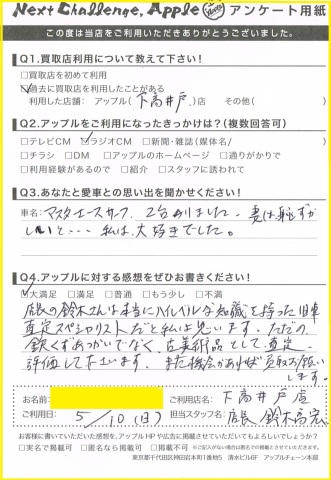 Next Challenge, Apple アンケート用紙
この度は当店をご利用いただきありがとうございました。
Q1.買取店利用について教えて下さい!
□買取店を初めて利用
☑過去に買取店を利用したことがある
利用した店舗: アップル( 下高井戸 )店 その他( )
Q2.アップルをご利用になったきっかけは?(複数回答可)
□テレビCM ☑ラジオCM □新聞・雑誌(媒体名/ )
□チラシ □DM □アップルのホームページ □通りがかりで
□利用経験があるので □紹介 □スタッフに誘われて
Q3.あなたと愛車との思い出を聞かせください!
車名: マスターエースサーフ. 2台のりました. 妻は恥ずか
しいと… 私は、大好きでした。
Q4.アップルに対する感想をぜひお書きください!
☑大満足 □満足 □普通 □もう少し □不満
店長の鈴木さんは本当にハイレベルな知識を持った旧車
査定スペシャリストだと私は思います. ただの
鉄くずあつかいでなく、古美術品として査定・
評価して下さいます. また機会があれば買取お願い
します。
お名前: ご利用店名: 下高井戸店
ご利用日: 5/10(日) 担当スタッフ名: 店長 鈴木
お客様に書いていただいた感想を、アップルHPや広告に掲載させていただいてもよろしいでしょうか?
□実名で掲載可 □匿名なら掲載可 □掲載不可 ※ご記入がない場合は匿名での掲載とさせていただきます。
東京都千代田区神田岩本町1番地5 清水ビル6F アップルチェーン本部